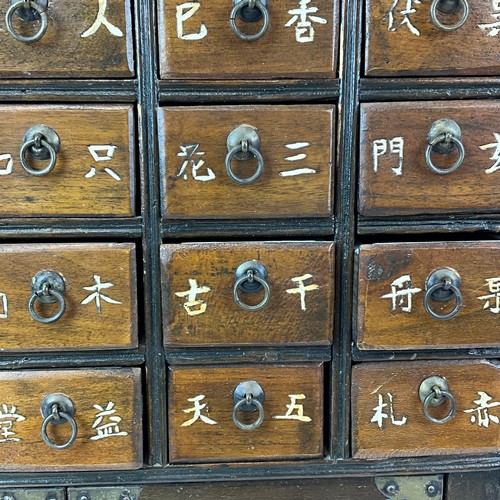 人 巳 香 伏
只 花 三 門
木 吉 千 舟
堂 益 天 五 札 赤